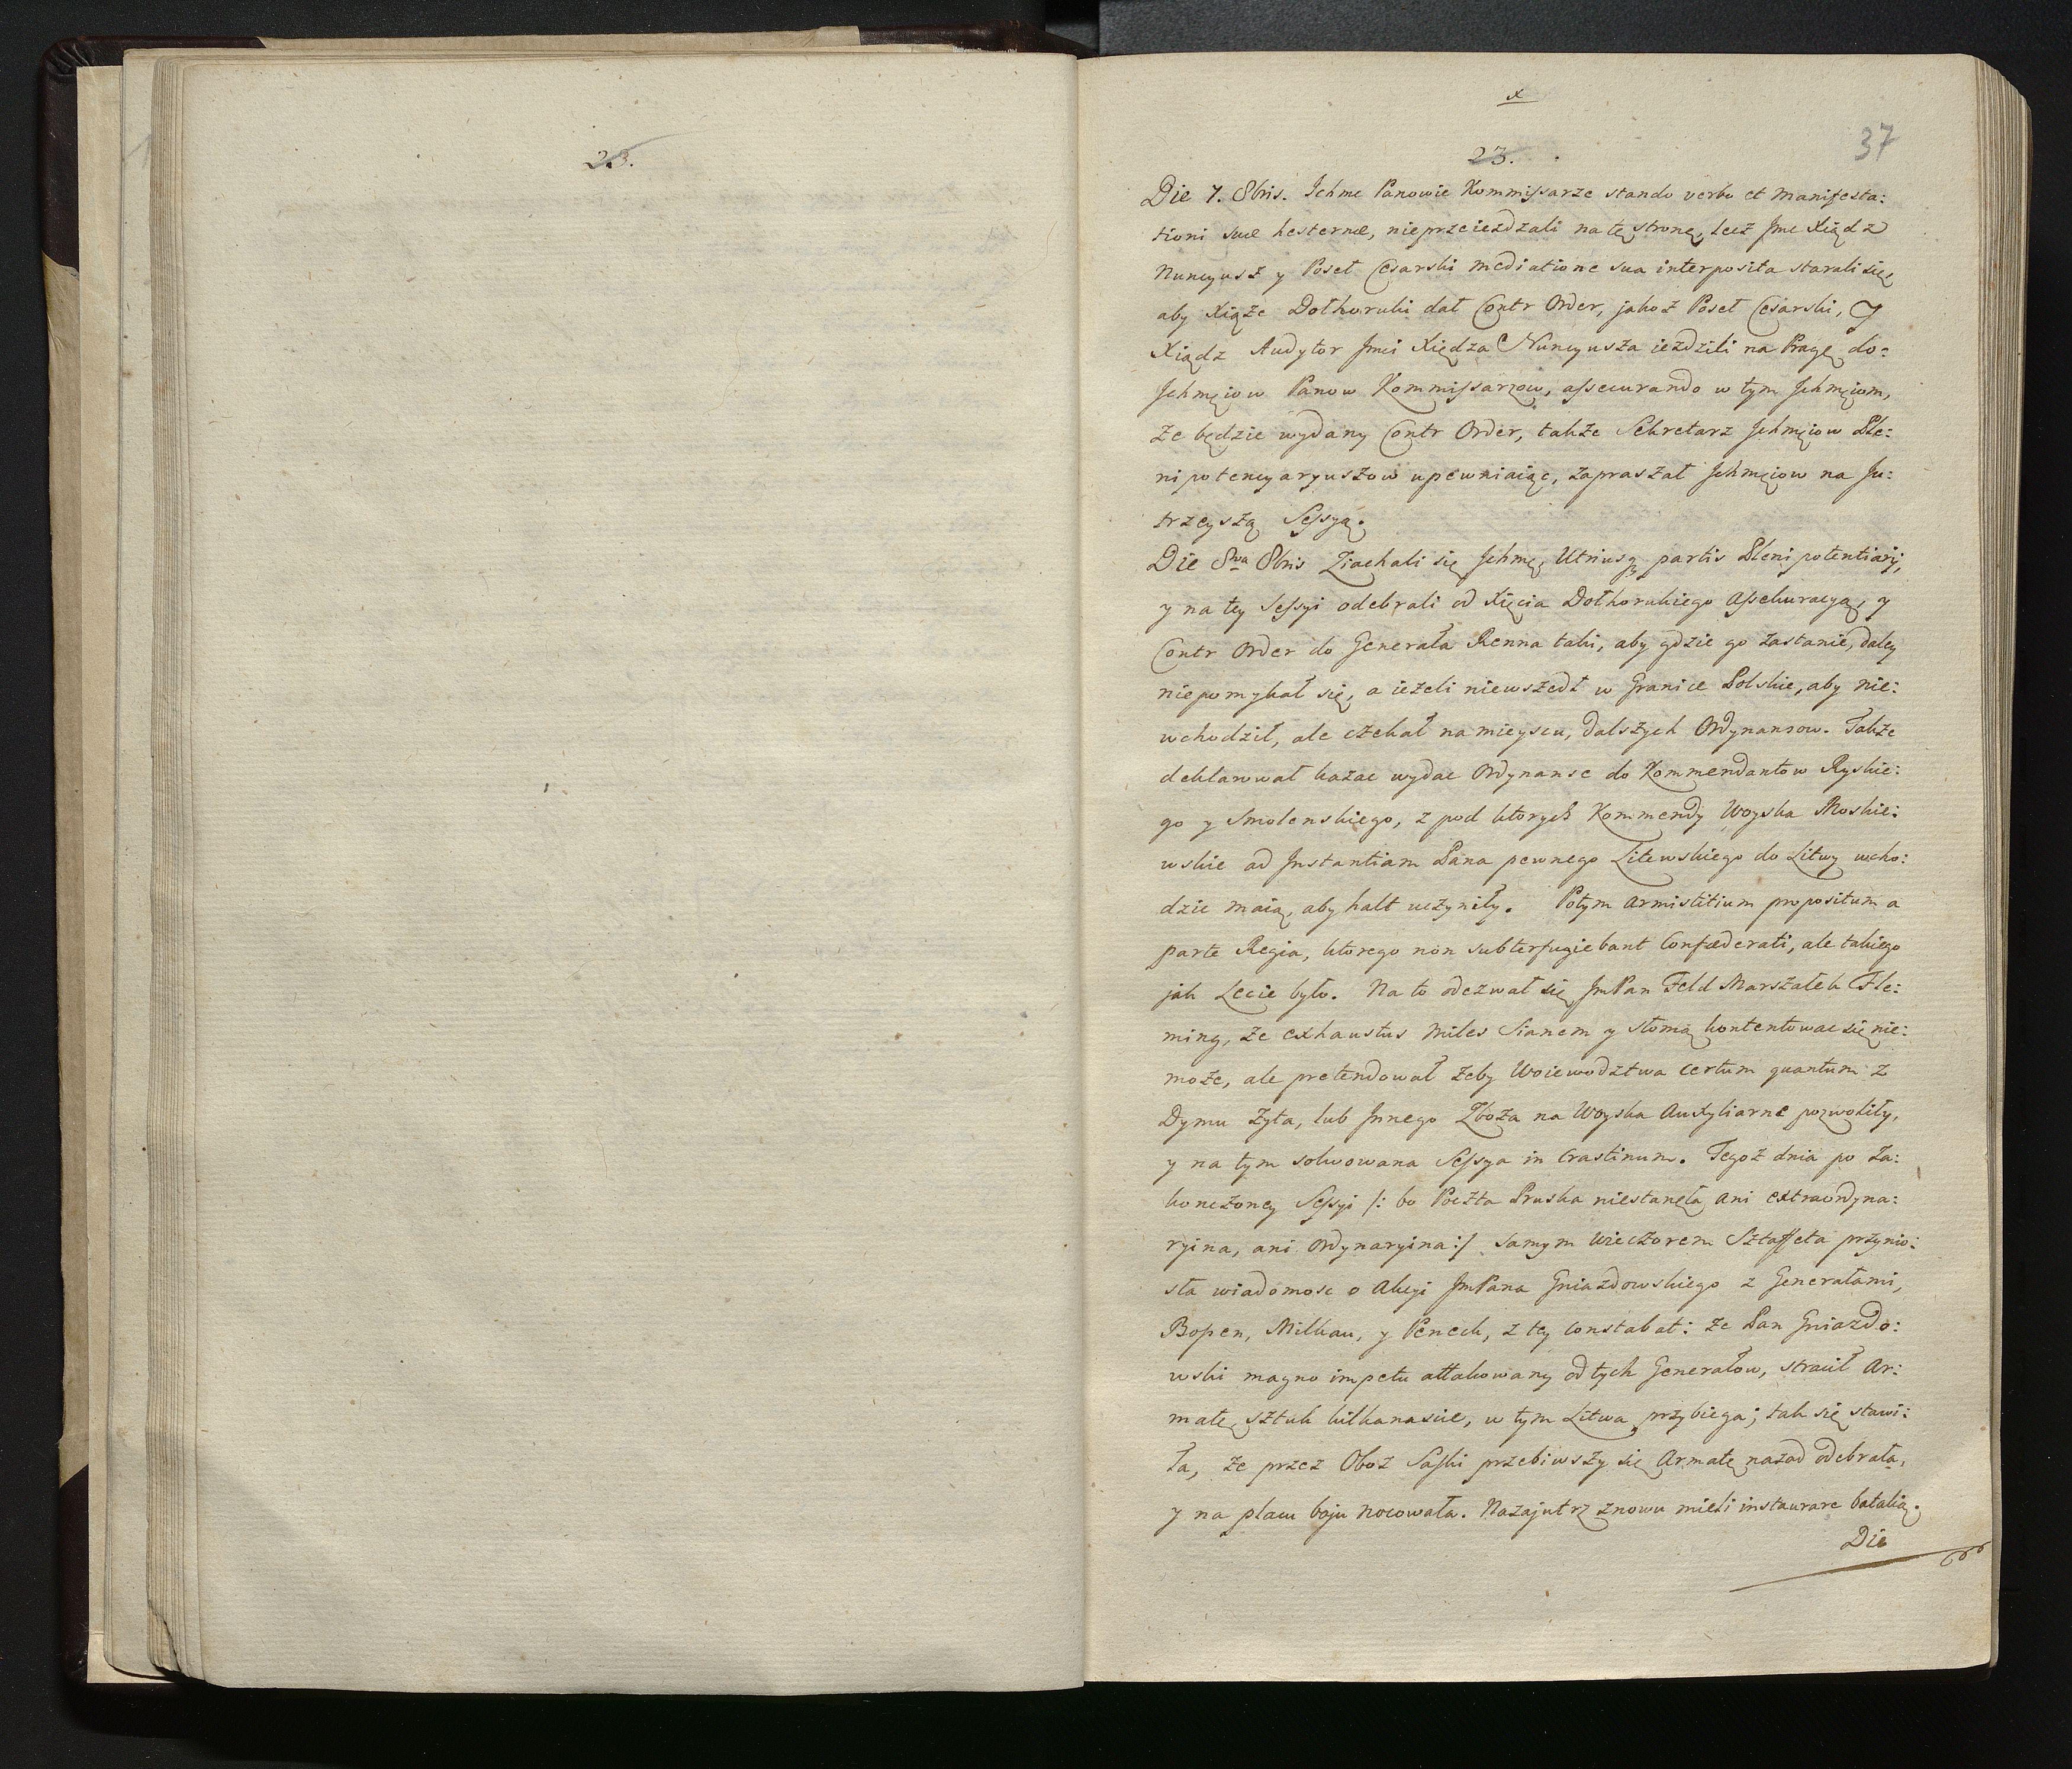 23.
x
37
23.
Die 7. 8bris. Ichme Panowie Kommissarze stando verbo et manifesta:
tioni suæ hesternæ, nieprzeiezdzali na tę stronę, lecz Jmc Xiądz
Nuncyusz y Poseł Cesarski mediatione sua interposita starali się,
aby Xiąże Dołhoruki dał Contr Order, jakoż Poseł Cesarski, y
Xiądz Audytor Jmci Xiędza Nuncyusza iezdzili na Pragę do:
Jchmciow Panow Kommissarzow, assecurando w tym Jchmciom,
że będzie wydany Contr Order, także Sekretarz Jchmciow Ple:
nipotencyaryuszow upewniaiąc, zapraszał Jchmciow na Ju:
trzeyszą Sessyą.
Die 8va 8bris Ziachali się Jchmć, Utriusq partis Plenipotentiarij,
y na tey Sessyi odebrali od Xięcia Dołhorukiego Assekuracyą, y
Contr Order do Generała Renna taki, aby gdzie go zastanie, daley
niepomykał się, a ieżeli niewszedł w Granice Polskie, aby nie:
wchodził, ale czekał na mieyscu, dalszych Ordynansow. Także
deklarował kazac wydac Ordynanse do Kommendantow Ryskie:
go y Smolenskiego, z pod ktorych Kommendy Woyska Moskie:
wskie ad Instantiam Pana pewnego Litewskiego do Litwy wcho:
dzic maią, aby halt uczyniły. Potym Armistitium propositum a
parte Regia, ktorego non subterfugiebant Confæderati, ale takiego
jak Lecie było. Na to odezwał się JmPan Feld Marszałek Fle:
ming, że exhaustus miles Sianem y słomą kontentowac się nie:
może, ale pretendował żeby Woiewodztwa certum quantum z
Dymu Żyta, lub Jnnego Zboża na Woyska Auxyliarne pozwoliły,
y na tym solwowana Sessya in Crastinum. Tegoż dnia po Za:
konczoney Sessyi /: bo Poczta Pruska niestanęła, ani extraordyna:
ryina, ani Ordynaryina :/ samym wieczorem Sztaffeta przynio:
sła wiadomosc o Akcyi JmPana Gniazdowskiego z Generałami,
Bopen, Milkau, y Penech, z tey constabat: że Pan Gniazdo:
wski magno impetu attakowany od tych Generałow, stracił Ar:
matę, sztuk kilkanascie, w tym Litwa przybiega; tak się stawi:
ła, że przez Oboz Saski przebiwszy się Armatę nazad odebrała,
y na placu boju nocowała. Nazajutrz znowu mieli instaurare batalią.
Die